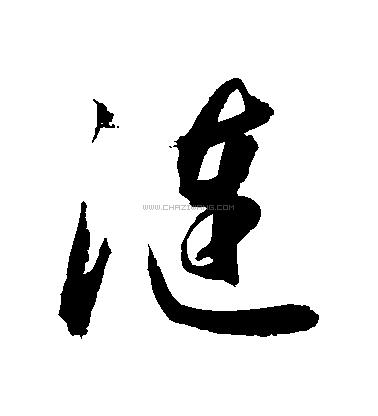 漣
WWW.CHAZIWANG.COM